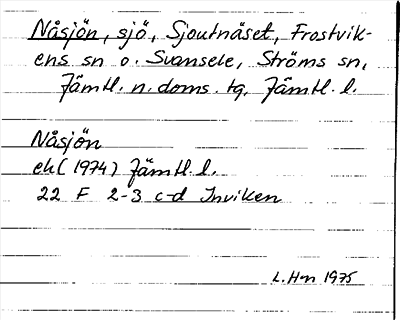 Nåsjön, sjö, Sjoutnäset, Frostvik-
ens sn o. Svansele, Ströms sn,
Jämtl. n. doms. tg, Jämtl. l.
Nåsjön
ek (1974) Jämtl. l.
22 F 2-3 c-d Inviken
L. Hm 1975